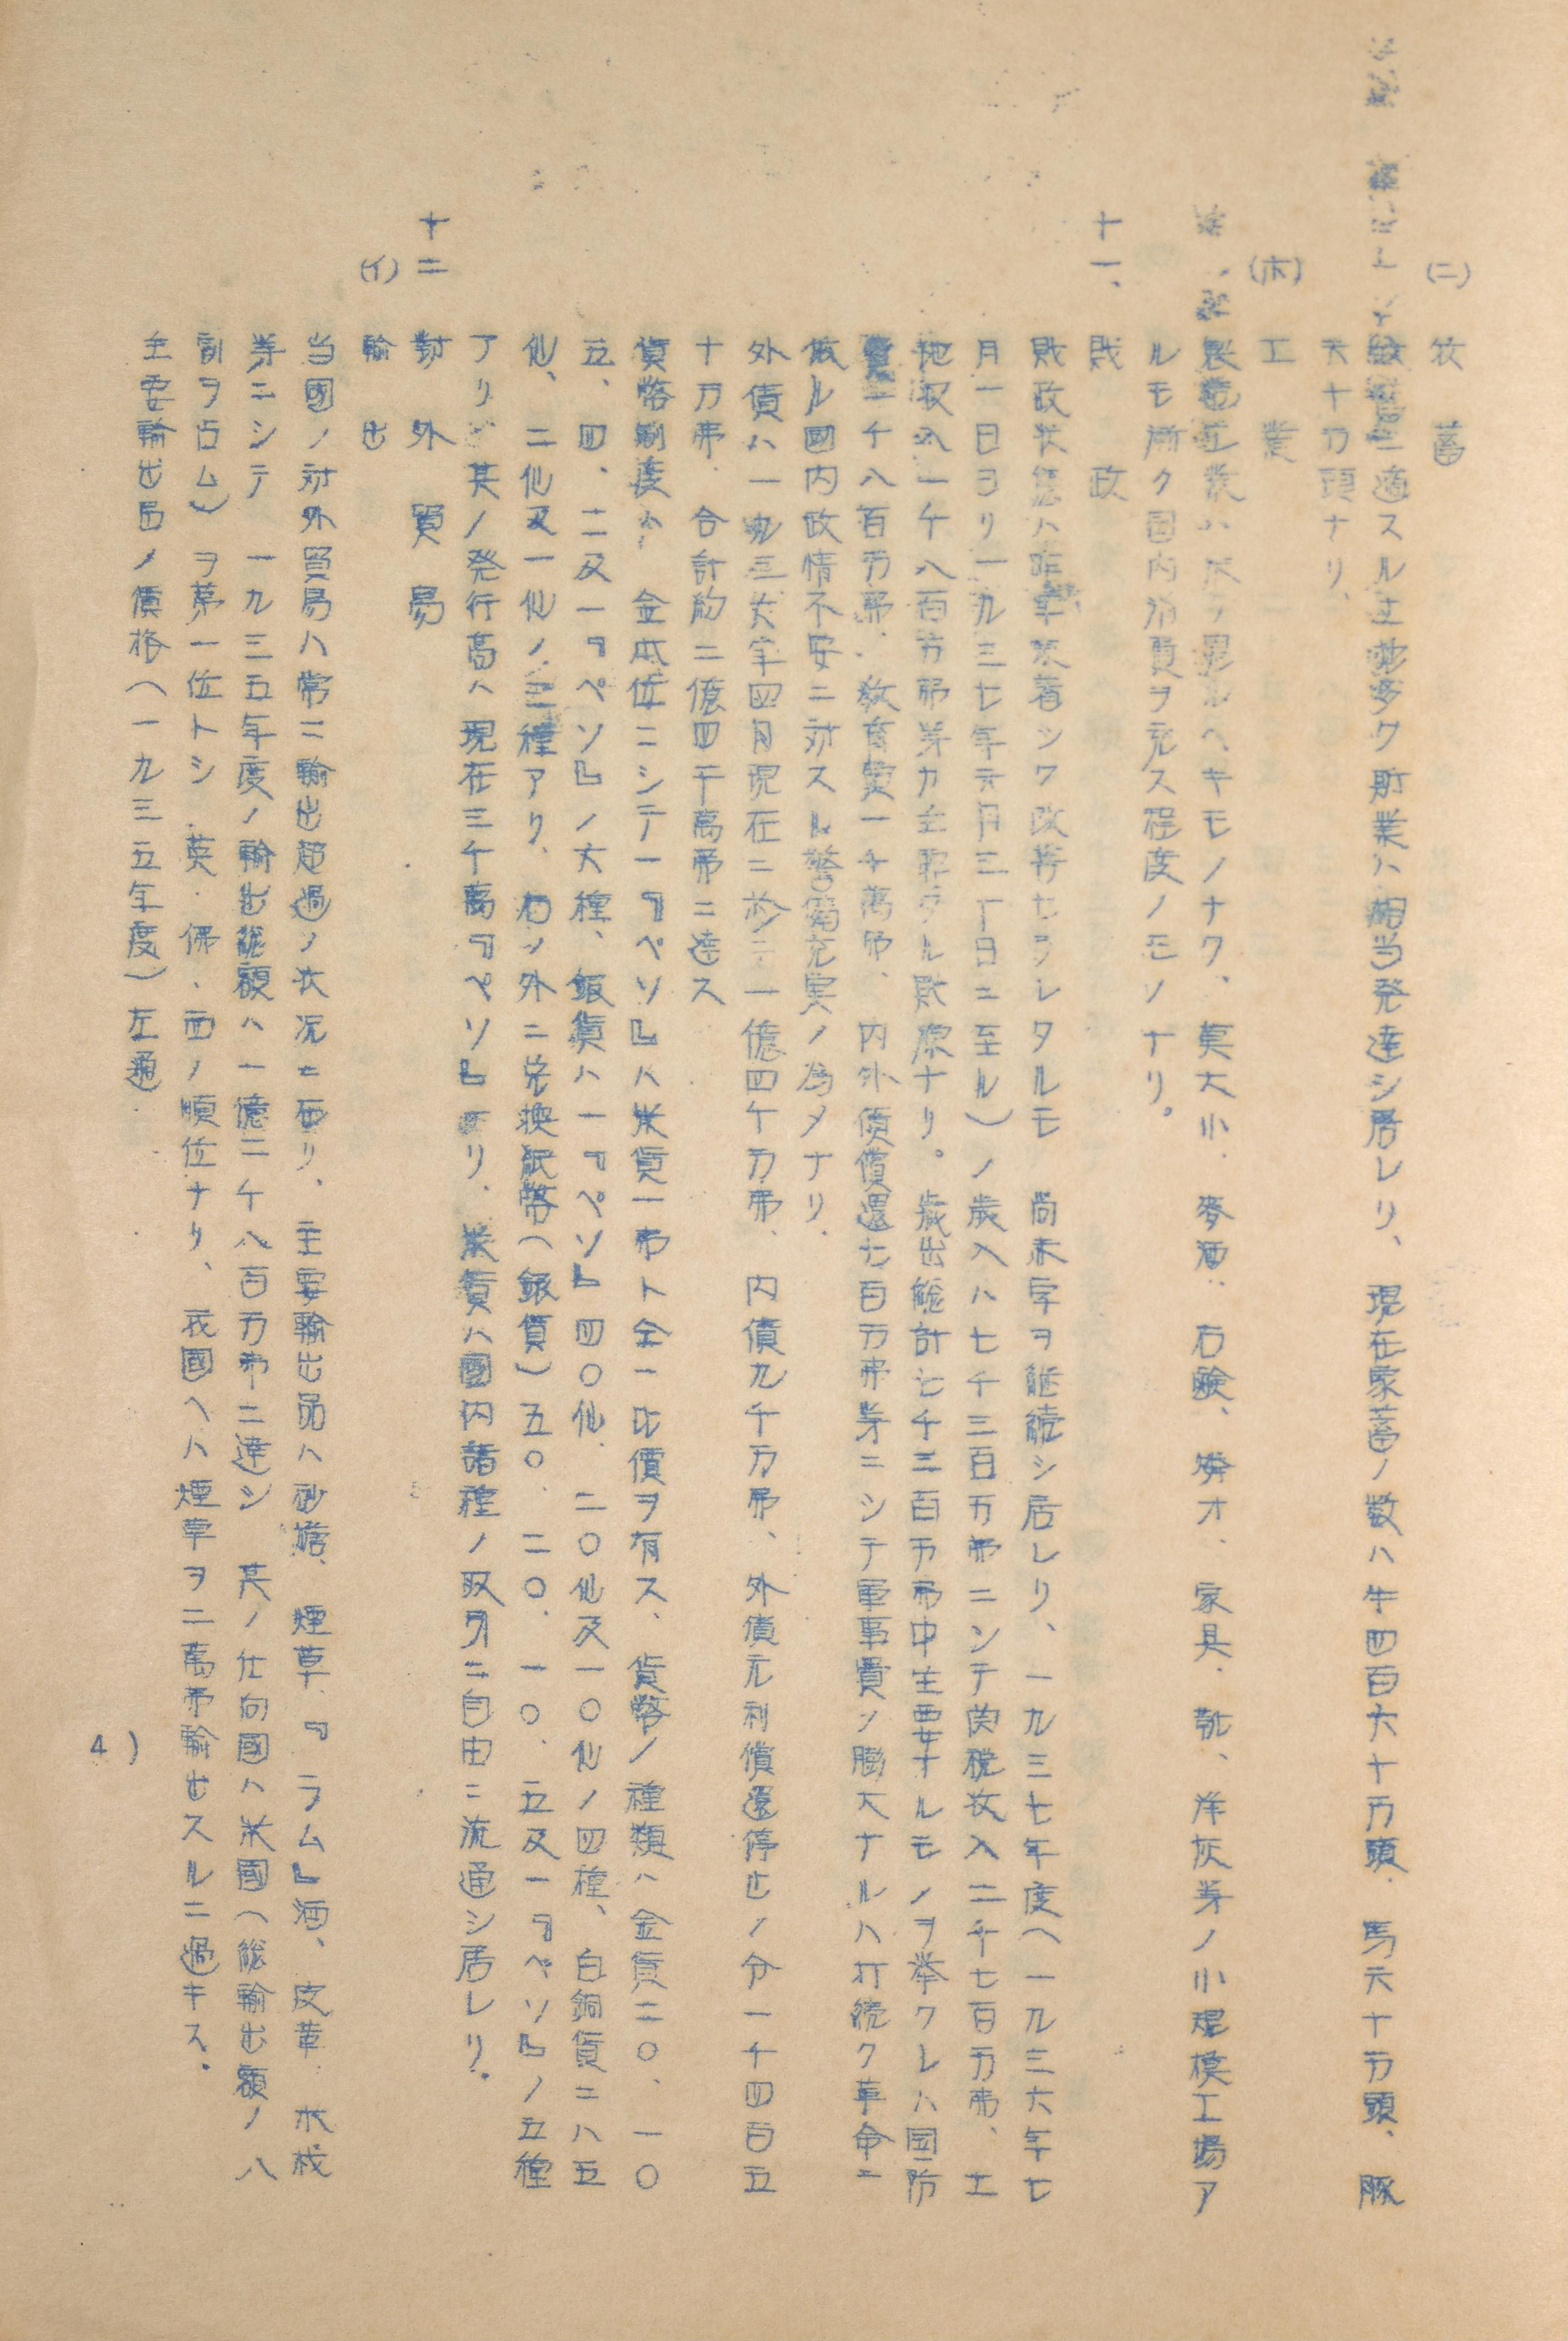 (ニ) 牧畜
牧畜ニ適スル土地多ク町業ハ相当発達シ居レリ、現在家畜ノ数ハ牛四百六十万頭、馬六十万頭、豚
六十万頭ナリ、
(ホ) 工業
製造工業ハ ルヘキモノナク、莫大小、麥酒、石鹸、燐寸、家具、靴、洋灰等ノ小規模工場ア
ルモ漸ク国内消費ヲ充ス程度ノモノナリ。
十一、財政
財政状態ハ昨年来著シク改善セラレタルモ尚赤字ヲ継続シ居レリ、一九三七年度(一九三六年七
月一日ヨリ一九三七年六月三十日ニ至ル)ノ歳入ハ七千三百万弗ニシテ関税收入二千七百万弗、土
地収入一千八百万弗等カ主ナル財源ナリ。歳出総計七千三百万弗中主要ナルモノヲ挙クレハ国防
費二千八百万弗、教育費一千萬弗、内外債償還七百万弗等ニシテ軍事費ノ膨大ナルハ打続ク革命ニ
依ル國内政情不安ニ対スル警備充実ノ為メナリ、
外債ハ一九三六年四月現在ニ於テ一億四千万弗、内債九千万弗、外債元利償還停止ノ分一千四百五
十万弗、合計約二億四千萬弗ニ達ス
貨幣制度ハ金本位ニシテ一『ペソ』ハ米貨一弗ト仝一比價ヲ有ス、貨幣ノ種類ハ金貨二〇、一〇
五、四、二及一『ペソ』ノ六種、銀貨ハ一『ペソ』四〇仙、二〇仙及一〇仙ノ四種、白銅貨ニハ五
仙、二仙及一仙ノ三種アリ、右ノ外ニ兌換紙幣(銀貨)五〇、二〇、一〇、五及一『ペソ』ノ五種
アリ、其ノ発行高ハ現在三千萬『ペソ』ナリ、米貨ハ國内諸種ノ取引ニ自由ニ流通シ居レリ。
十二 對外貿易
(イ) 輸出
当國ノ対外貿易ハ常ニ輸出超過ノ状況ニ在リ、主要輸出品ハ砂糖、煙草、『ラム』酒、皮革、木材
等ニシテ一九三五年度ノ輸出総額ハ一億二千八百万弗ニ達シ其ノ仕向國ハ米國(総輸出額ノ八
割ヲ占ム)ヲ第一位トシ、英、佛、西ノ順位ナリ、我國ヘハ煙草ヲ二萬弗輸出スルニ過キス。
主要輸出品ノ價格(一九三五年度)左通
4)